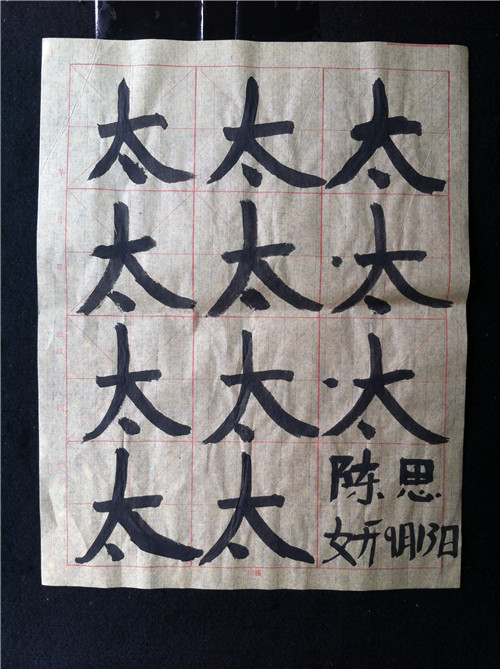 太太太
太太太
太太太
太太
陈思
妍9月13日